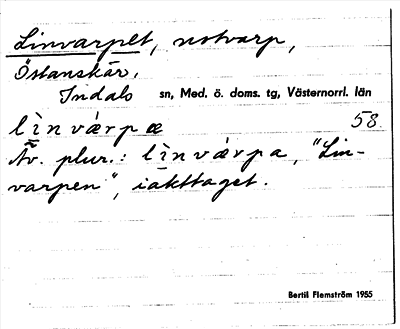 Linvarpet, notvarp,
Östanskär,
Indals sn, Med. ö. doms. tg, Västernorrl. län
lìnvárpæ 58.
Äv. plur.: lìnvárpa, "Lin-
varpen", iakttaget.
Bertil Flemström 1955